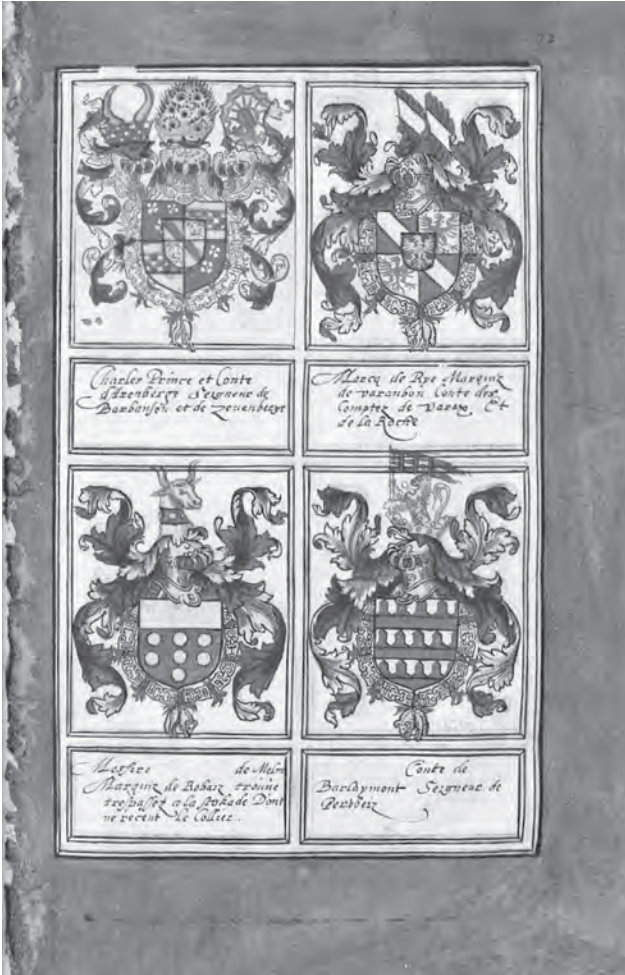 Charles Prince et Conte
d'Arenberge Seigneur de
Barbanson et de Zevenberge
Marcq de Rye Marquiz
de Varanbon Conte des
Comptez de Varax Et
de la Roche
Messire de Melu
Marquiz de Robaiz trouue
trespasset a la Dont
ne recent le Collier.
Conte de
Barlaymont Seigneur de